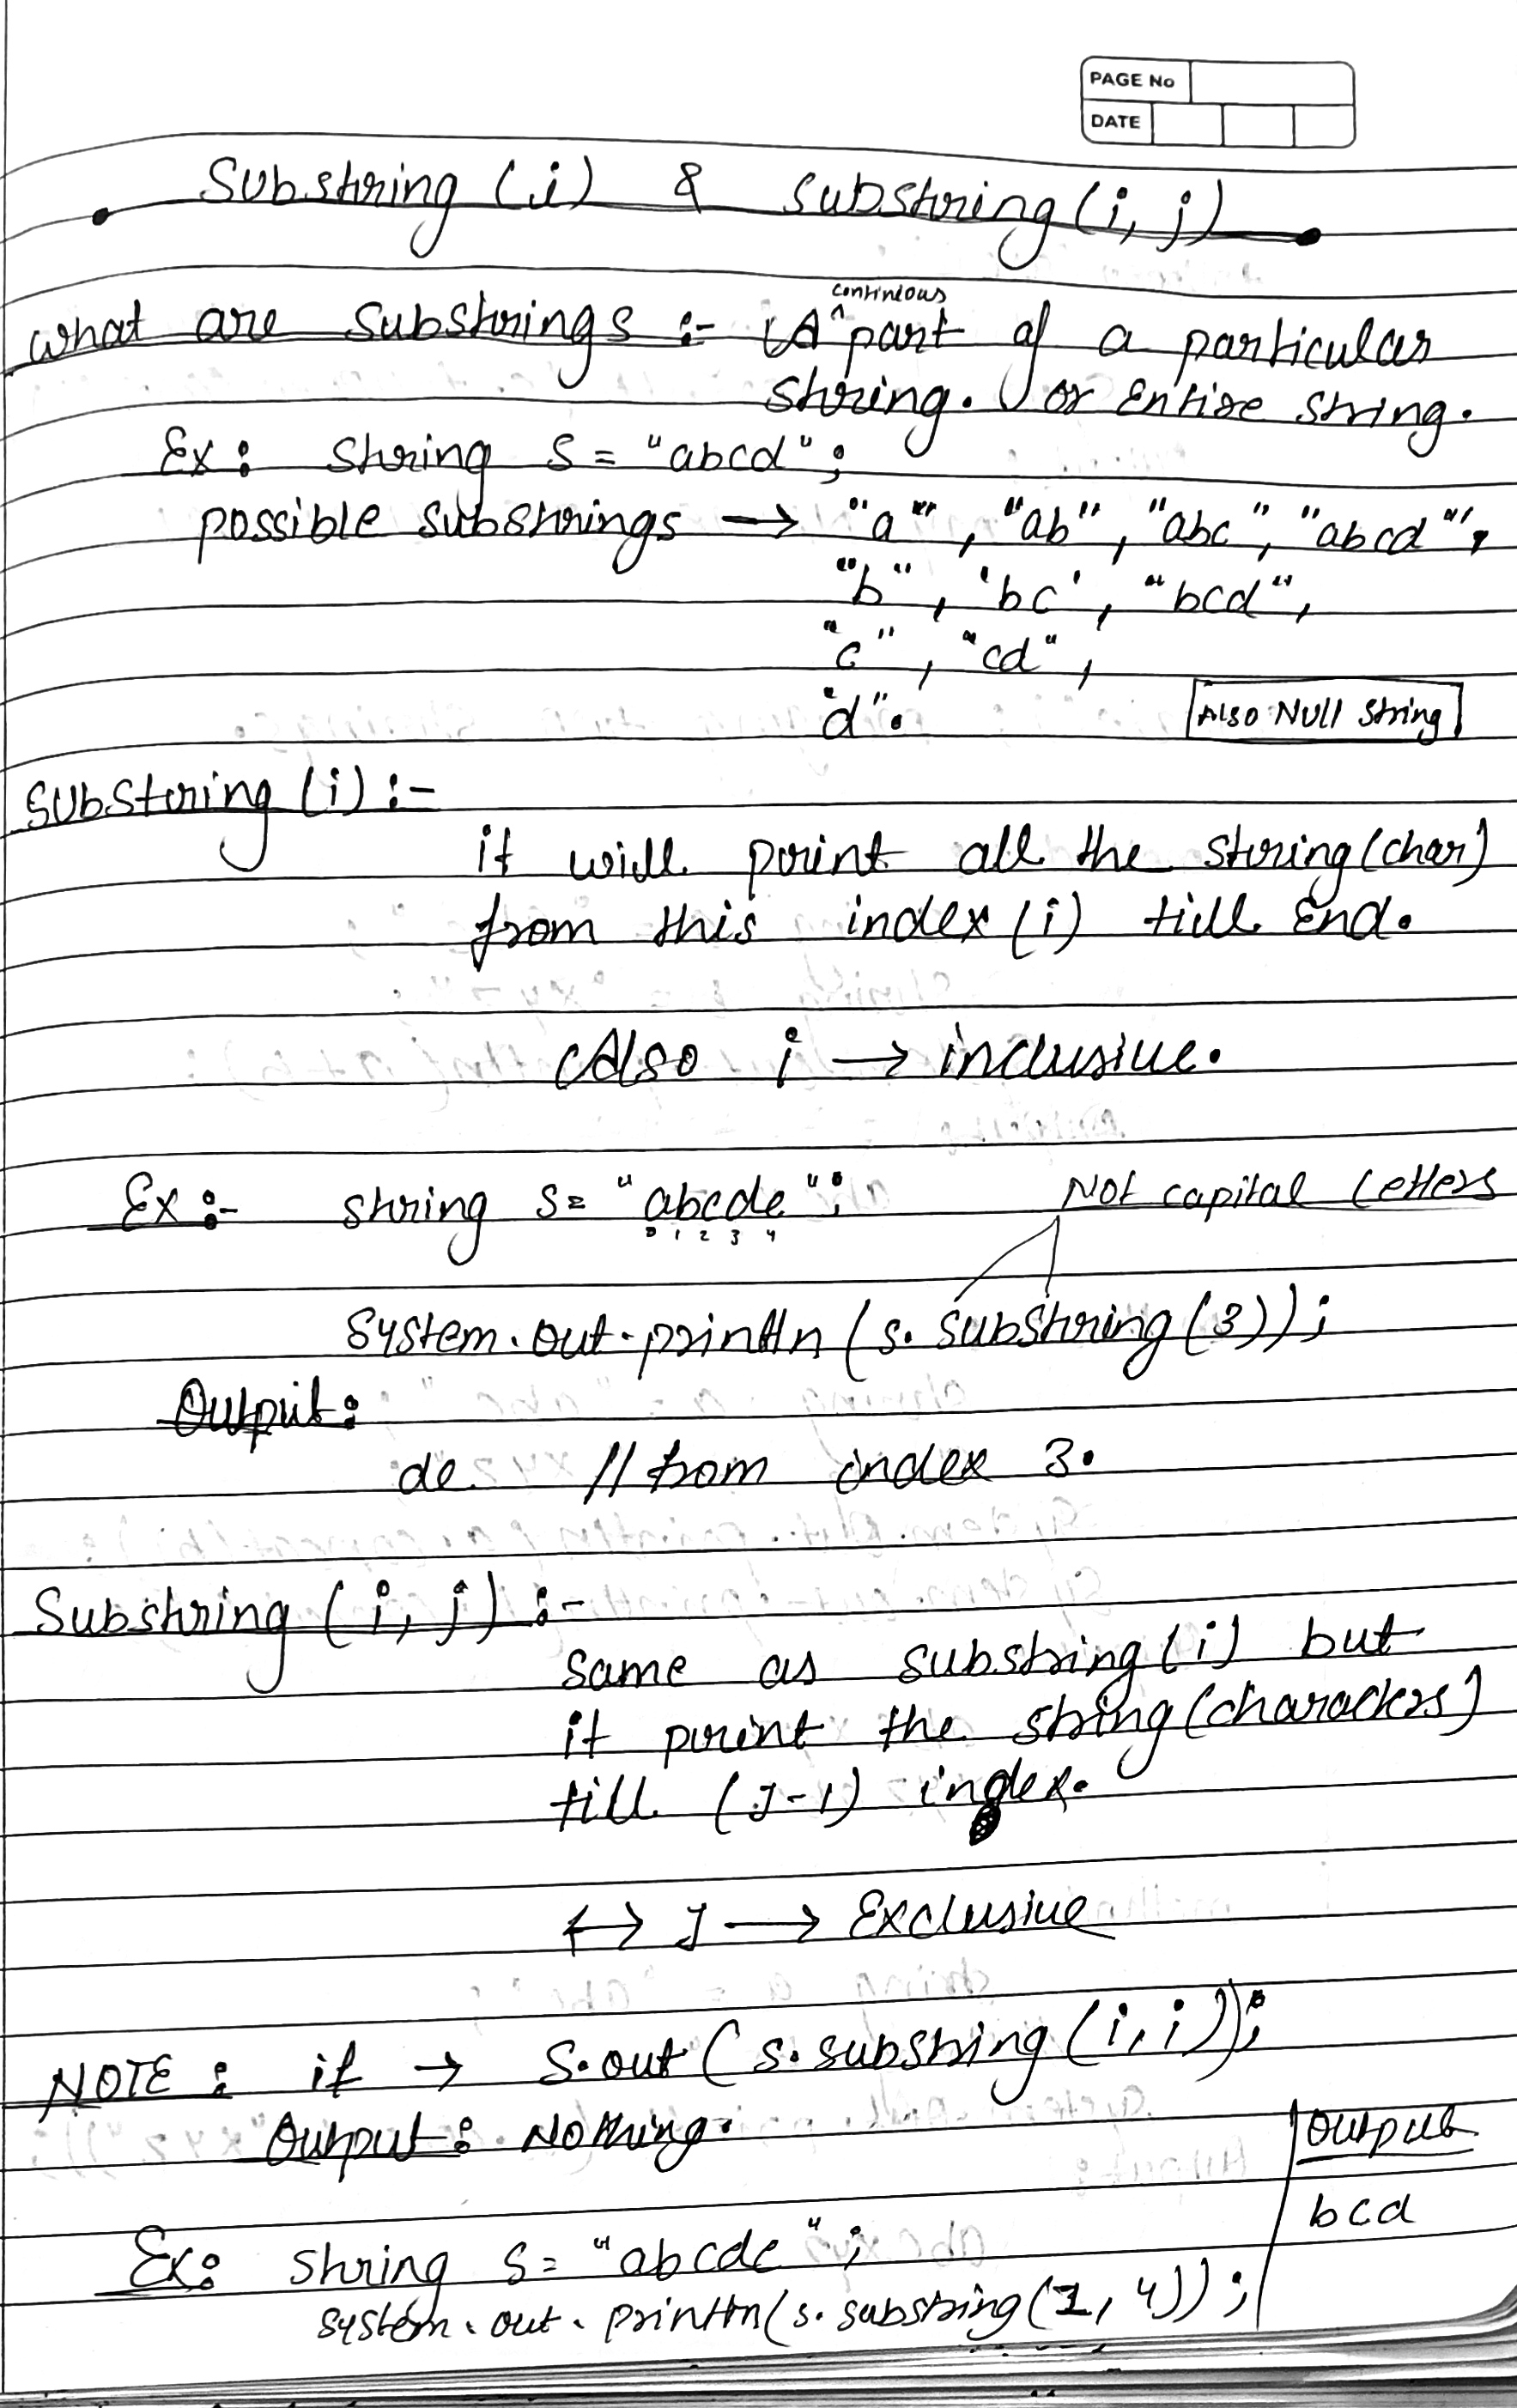 PAGE No
DATE
Substring (i) & substring (i, j)
continious
what are substrings :- A ^ part of a particular
string. or Entire string.
Ex: string s = "abcd";
possible substrings → "a", "ab", "abc", "abcd",
"b", 'bc', "bcd",
"c", "cd",
"d".
Also NUll string
Substring (i) :-
it will print all the string (char)
from this index (i) till End.
Also i → inclusive.
Ex :- string s = "abcde";
0 1 2 3 4
Not capital letters
System.out.println (s. substring (3));
Output:
de // from index 3.
Substring (i, j) :-
same as substring (i) but
it print the string (characters)
till (J-1) index.
↔ J → Exclusive
NOTE : if → S.out ( s. substring (i, i));
Output : Nothing.
Output
bcd
Ex: string s = "abcde";
system.out.println(s. substring (1, 4));